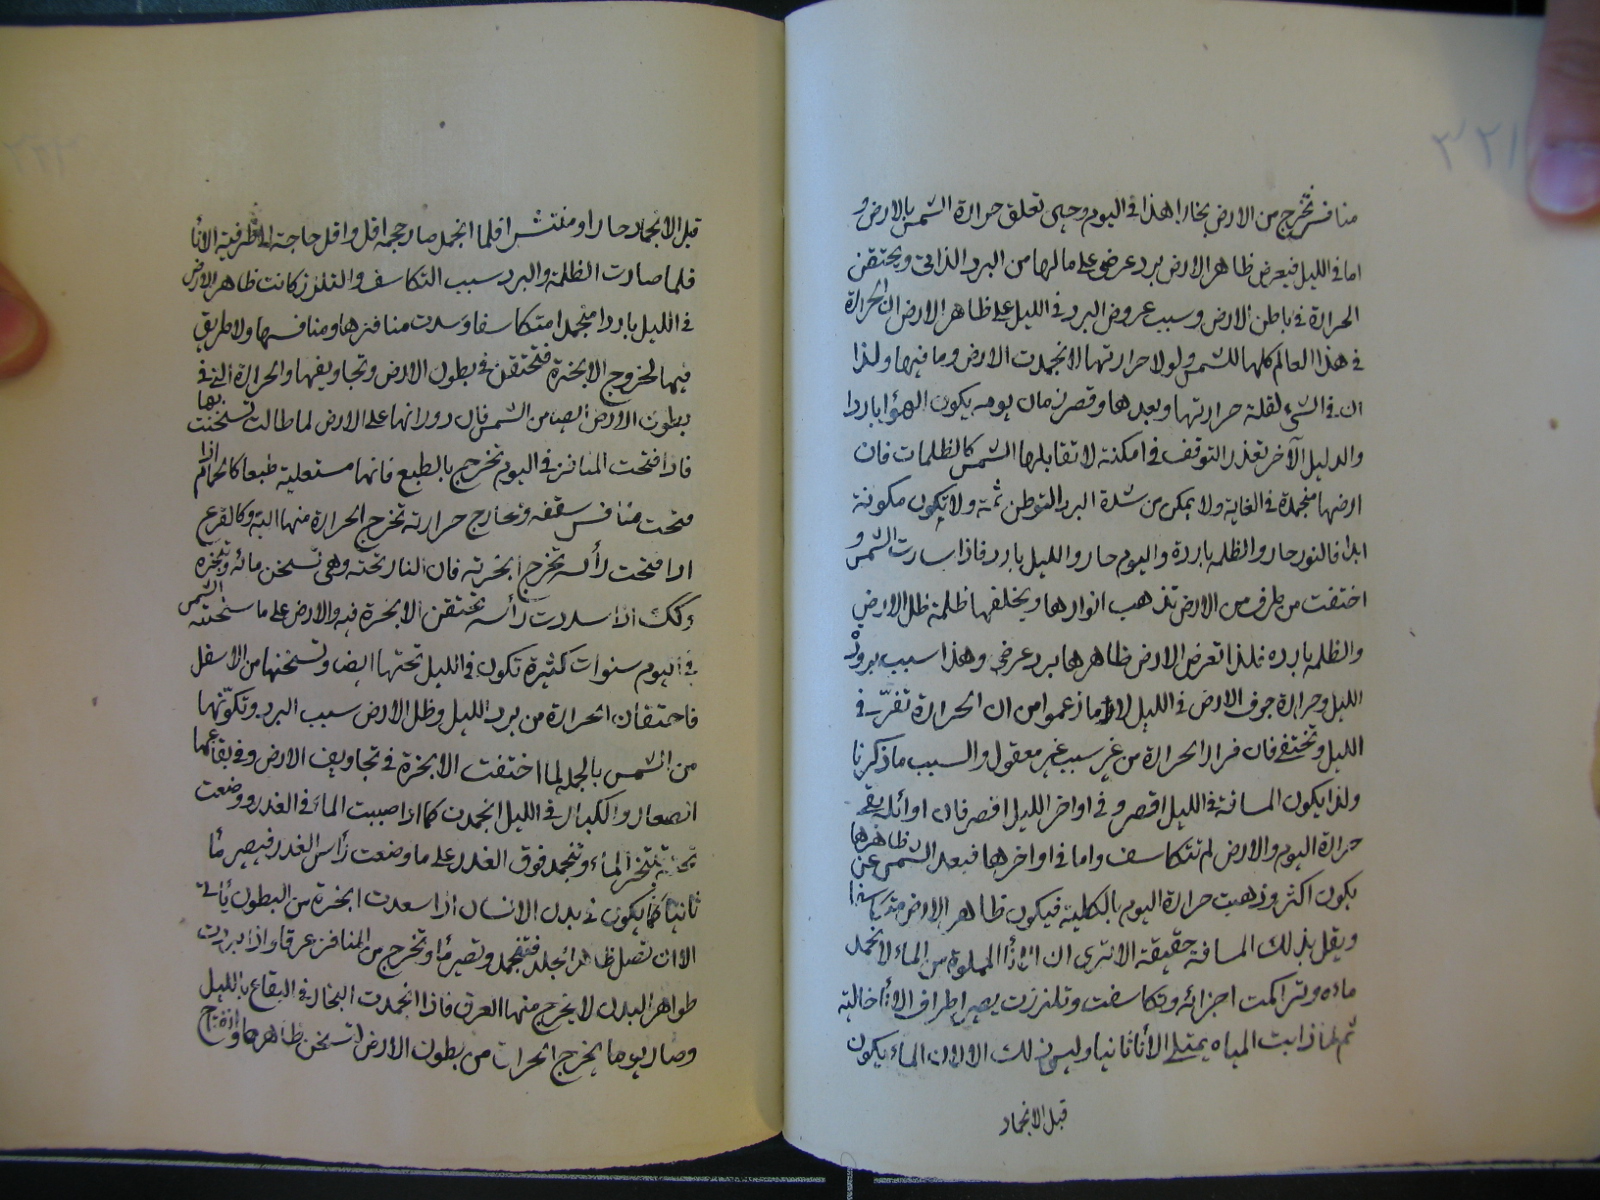 ٣٢١
منافس تخرج من الارض بخارا هذا فی الیوم وحین تعلق حرارة الشمس بالارض و
اما فی اللیل فیعرض ظاهر الارض برد عرضی علی ما لها من البرد الذاتی ویحتقن
الحرارة فی باطن الارض وسبب عروض البرد فی اللیل علی ظاهر الارض ان الحرارة
فی هذا العالم کلها للشمس ولولا حرارتها لانجمدت الارض وما فیها ولذا
ان فی الشتاء لقلة حرارتها وبعدها وقصر زمان یومه یکون الهواء باردا
والدلیل الآخر تعذر التوقف فی امکنة لا تقابلها الشمس کالظلمات فان
ارضها منجمدة فی الغایة ولا یمکن من شدة البرد التوطن ثمة ولا تکون مکونة
ابدا فالنور حار والظلمة باردة والیوم حار واللیل بارد فاذا سارت الشمس و
اختفت من طرف من الارض تذهب انوارها ویخلفها ظلمة ظل الارض
والظلمة باردة فلذا تعرض الارض ظاهرها برد عرضی وهذا سبب برودة
اللیل وحرارة جوف الارض فی اللیل لا ما زعموا من ان الحرارة تفر فی
اللیل وتختفی فان فرار الحرارة من غیر سبب غیر معقول والسبب ما ذکرنا
ولذا یکون المسافة فی اللیل اقصر وفی اواخر اللیل اقصر فان اوائله یبقی
حرارة الیوم والارض لم تتکاسف واما فی اواخرها فبعد الشمس عن ظاهرها
یکون اکثر وذهبت حرارة الیوم بالکلیة فیکون ظاهر الارض متکاسفا
ویقل بذلک المسافة حقیقة الا تری ان الاناء المملوة من الماء لانجمد
ماءه وتراکمت اجزائه وتکاسفت وتلززت یصیر اطراف الاناء خالیة
ثم لما ذابت المیاه یمتلی الاناء ثانیا ولیس ذلک الا لان الماء یکون
قبل الانجماد
قبل الانجماد حارا ومنتشرا فلما انجمد صار حجمه اقل واقل حاجة الی ظرفیة الاناء
فلما صارت الظلمة والبرد سبب التکاسف والتلزز کانت ظاهر الارض
فی اللیل باردا منجمدا متکاسفا وسدت منافذها ومنافسها ولا طریق
فیها لخروج الابخرة فتحتقن فی بطون الارض وتجاویفها والحرارة التی فی
بطون الارض ایضا من الشمس فان دورانها علی الارض لما طالت تسخنت بها
فاذا فتحت المنافذ فی الیوم تخرج بالطبع فانها مستعلیة طبعا کالحمام اذا
فتحت منافس سقفه ومخارج حرارته تخرج الحرارة منها البتة وکالقرع
اذا فتحت رأسه تخرج ابخرته فان النار تحته وهی تسخن مائه وتبخره
وکذلک اذا سددت رأسه تحتقن الابخرة فیه والارض علی ما سخنته الشمس
فی الیوم سنوات کثیرة تکون فی اللیل تحتها ایضا وتسخنها من الاسفل
فاحتقان الحرارة من برد اللیل وظل الارض سبب البرد وتکونها
من الشمس بالجملة لما اختفت الابخرة فی تجاویف الارض وفی بقاعها
الصغار والکبار فی اللیل انجمدن کما اذا صببت الماء فی القدر ووضعت
تحته یتبخر الماء وینجمد فوق القدر علی ما وضعت رأس القدر فیصیر ماء
ثانیا کما یکون فی بدن الانسان اذا سعدت ابخرة من البطون یأتی
الا ان تصل ظاهر الجلد فتنجمد وتصیر ماء وتخرج من المنافذ عرقا واذا بردت
ظواهر البدن لا یخرج منها العرق فاذا انجمدت البخار فی البقاع باللیل
وصار یوما یخرج الحرارات من بطون الارض لتسخن ظاهرها